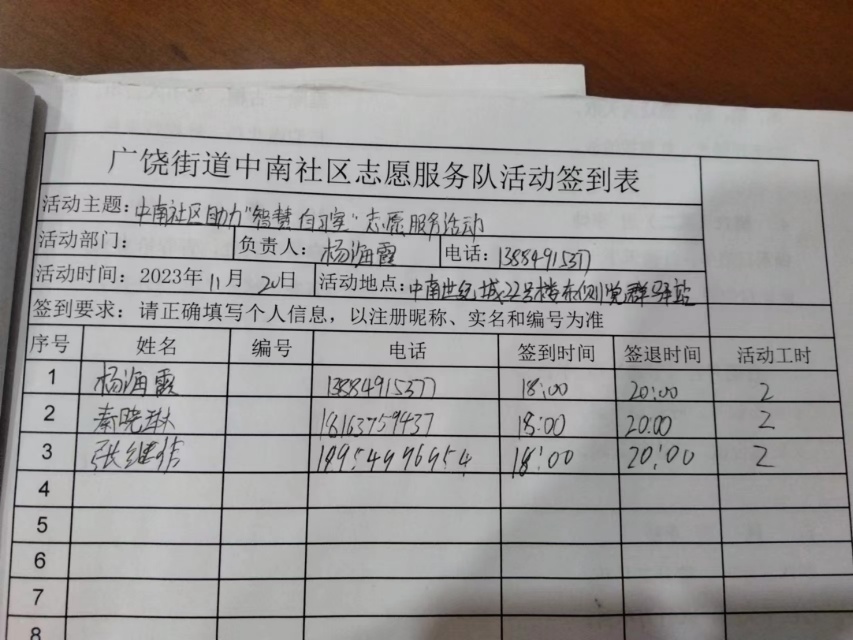 广饶街道中南社区志愿服务队活动签到表
活动主题：中南社区助力"智慧自习室"志愿服务活动
活动部门： 负责人：杨海霞 电话：13884915377
活动时间：2023年11月20日 活动地点：中南世纪城22号楼东侧党群驿站
签到要求：请正确填写个人信息，以注册昵称、实名和编号为准
序号 姓名 编号 电话 签到时间 签退时间 活动工时
1 杨海霞 13884915377 18:00 20:00 2
2 秦晓琳 18163759437 18:00 20:00 2
3 张继 18:00 20:00 2
4
5
6
7
8